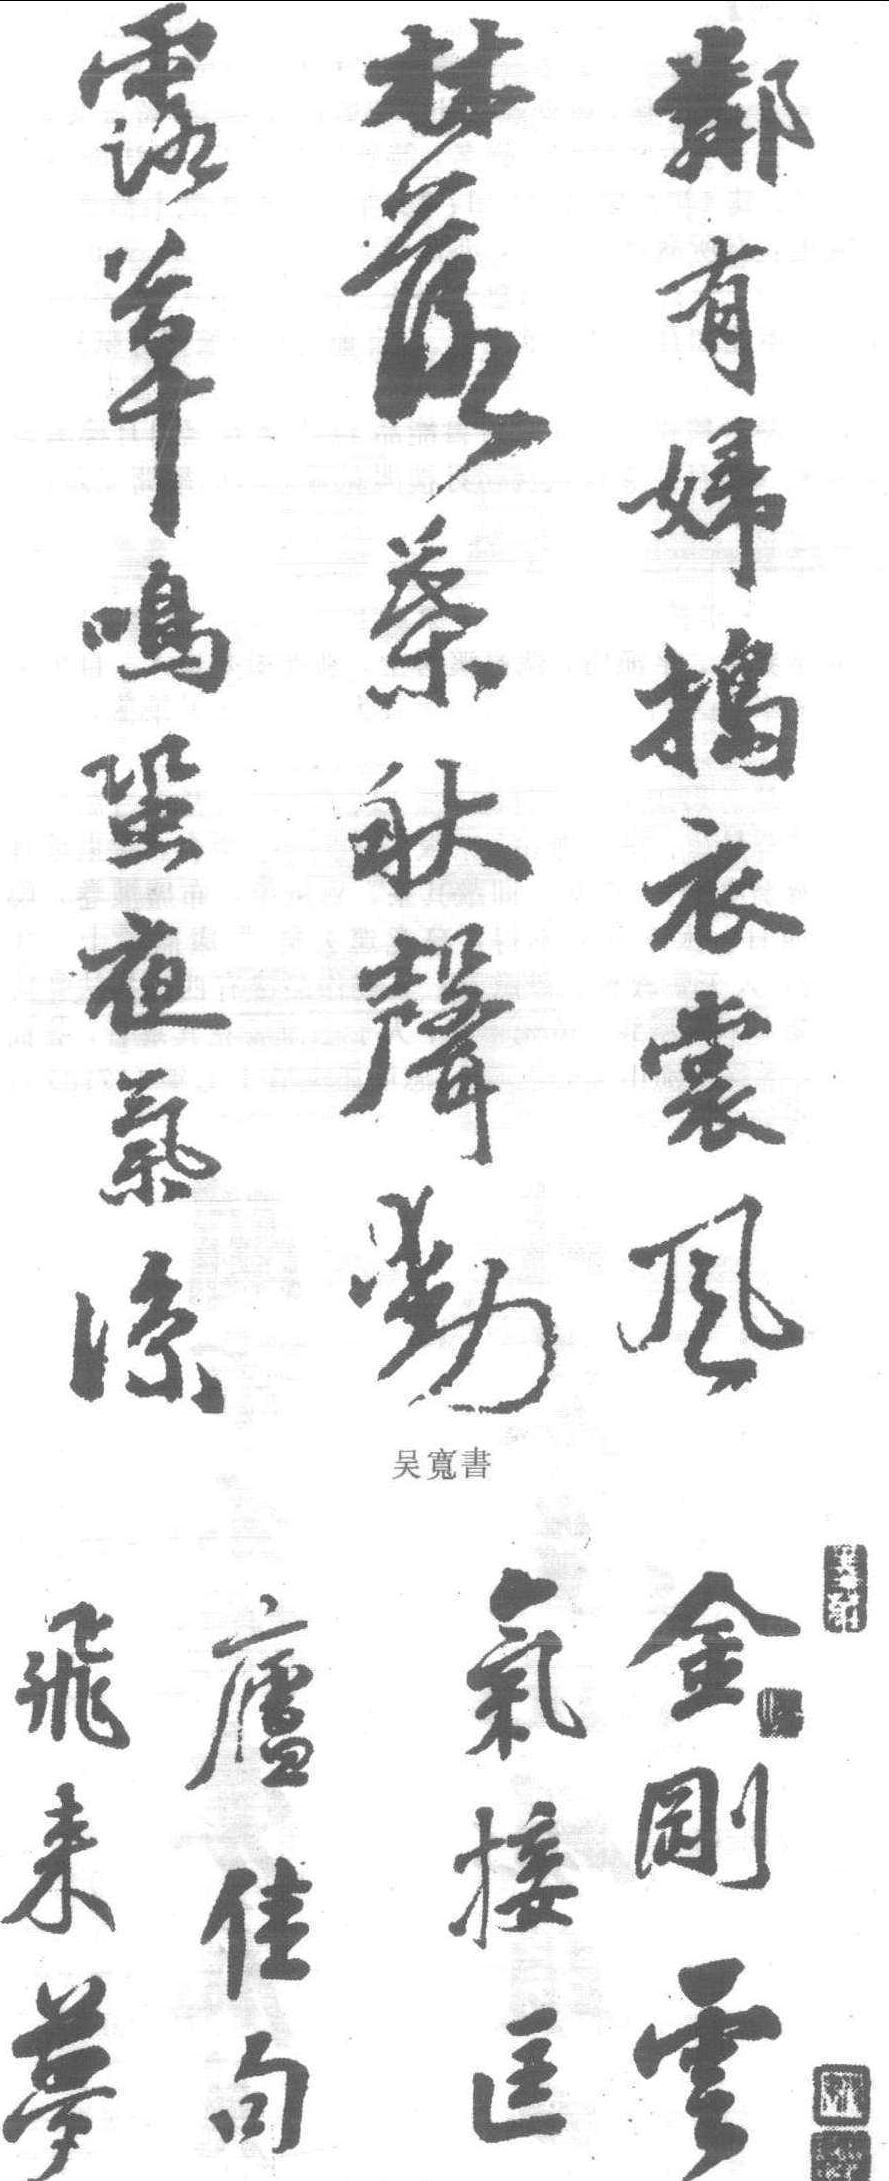 鄰有婦搗衣裳風
林落葉秋聲動
露草鳴蛩夜氣涼
吴寬書
金剛雲
氣接匡
廬佳句
飛来夢